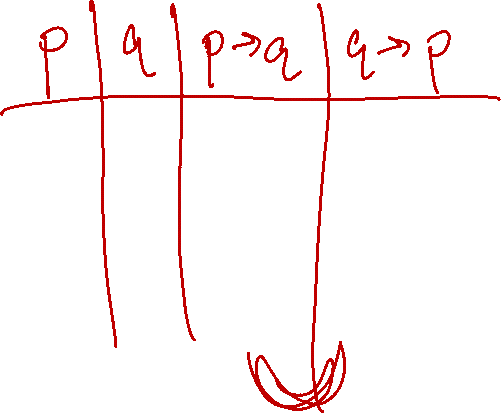 p | q | p → q | q → p